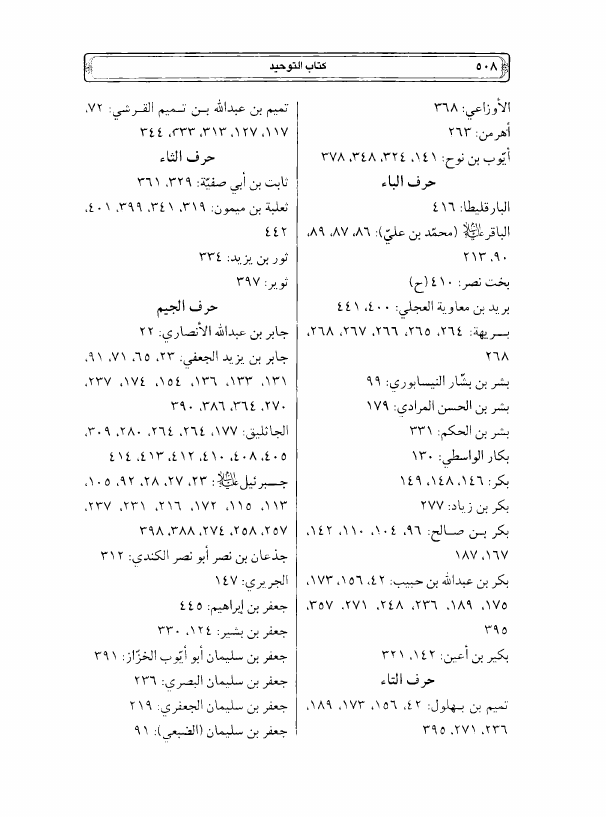 ٥٠٨
كتاب التوحيد
الأوزاعي: ٣٦٨
أهرمن: ٢٦٣
أيّوب بن نوح: ١٤١، ٣٢٤، ٣٤٨، ٣٧٨
حرف الباء
البارقليطا: ٤١٦
الباقر عليه السلام (محمّد بن عليّ): ٨٦، ٨٧، ٨٩،
٩٠، ٢١٣
بخت نصر: ٤١٠ (ح)
بريد بن معاوية العجلي: ٤٠٠، ٤٤١
بـريهة: ٢٦٤، ٢٦٥، ٢٦٦، ٢٦٧، ٢٦٨،
٢٦٨
بشر بن بشّار النيسابوري: ٩٩
بشر بن الحسن المرادي: ١٧٩
بشر بن الحكم: ٣٣١
بكار الواسطي: ١٣٠
بكر: ١٤٦، ١٤٨، ١٤٩
بكر بن زياد: ٢٧٧
بكر بـن صـالح: ٩٦، ١٠٤، ١١٠، ١٤٢،
١٦٧، ١٨٧
بكر بن عبدالله بن حبيب: ٤٢، ١٥٦، ١٧٣،
١٧٥، ١٨٩، ٢٣٦، ٢٤٨، ٢٧١، ٣٥٧،
٣٩٥
بكير بن أعين: ١٤٢، ٣٢١
حرف التاء
تميم بن بـهلول: ٤٢، ١٥٦، ١٧٣، ١٨٩،
٢٣٦، ٢٧١، ٣٩٥
تميم بن عبدالله بـن تـميم القـرشي: ٧٢،
١١٧، ١٢٧، ٣١٣، ٣٣٣، ٣٤٤
حرف الثاء
ثابت بن أبي صفيّة: ٣٢٩، ٣٦١
ثعلبة بن ميمون: ٣١٩، ٣٤١، ٣٩٩، ٤٠١،
٤٤٢
ثور بن يزيد: ٣٣٤
ثوير: ٣٩٧
حرف الجيم
جابر بن عبدالله الأنصاري: ٢٢
جابر بن يزيد الجعفي: ٢٣، ٦٥، ٧١، ٩١،
١٣١، ١٣٣، ١٣٦، ١٥٤، ١٧٤، ٢٣٧،
٢٧٠، ٣٦٤، ٣٨٦، ٣٩٠
الجاثليق: ١٧٧، ٢٦٤، ٢٦٤، ٢٨٠، ٣٠٩،
٤٠٥، ٤٠٨، ٤١٠، ٤١٢، ٤١٣، ٤١٤
جـبرئيل عليه السلام: ٢٣، ٢٧، ٢٨، ٩٢، ١٠٥،
١١٣، ١١٥، ١٧٢، ٢١٦، ٢٣١، ٢٣٧،
٢٥٧، ٢٥٨، ٢٧٤، ٣٨٨، ٣٩٨
جذعان بن نصر أبو نصر الكندي: ٣١٢
الجريري: ١٤٧
جعفر بن إبراهيم: ٤٤٥
جعفر بن بشير: ١٢٤، ٣٣٠
جعفر بن سليمان أبو أيّوب الخزّاز: ٣٩١
جعفر بن سليمان البصري: ٢٣٦
جعفر بن سليمان الجعفري: ٢١٩
جعفر بن سليمان (الضبعي): ٩١